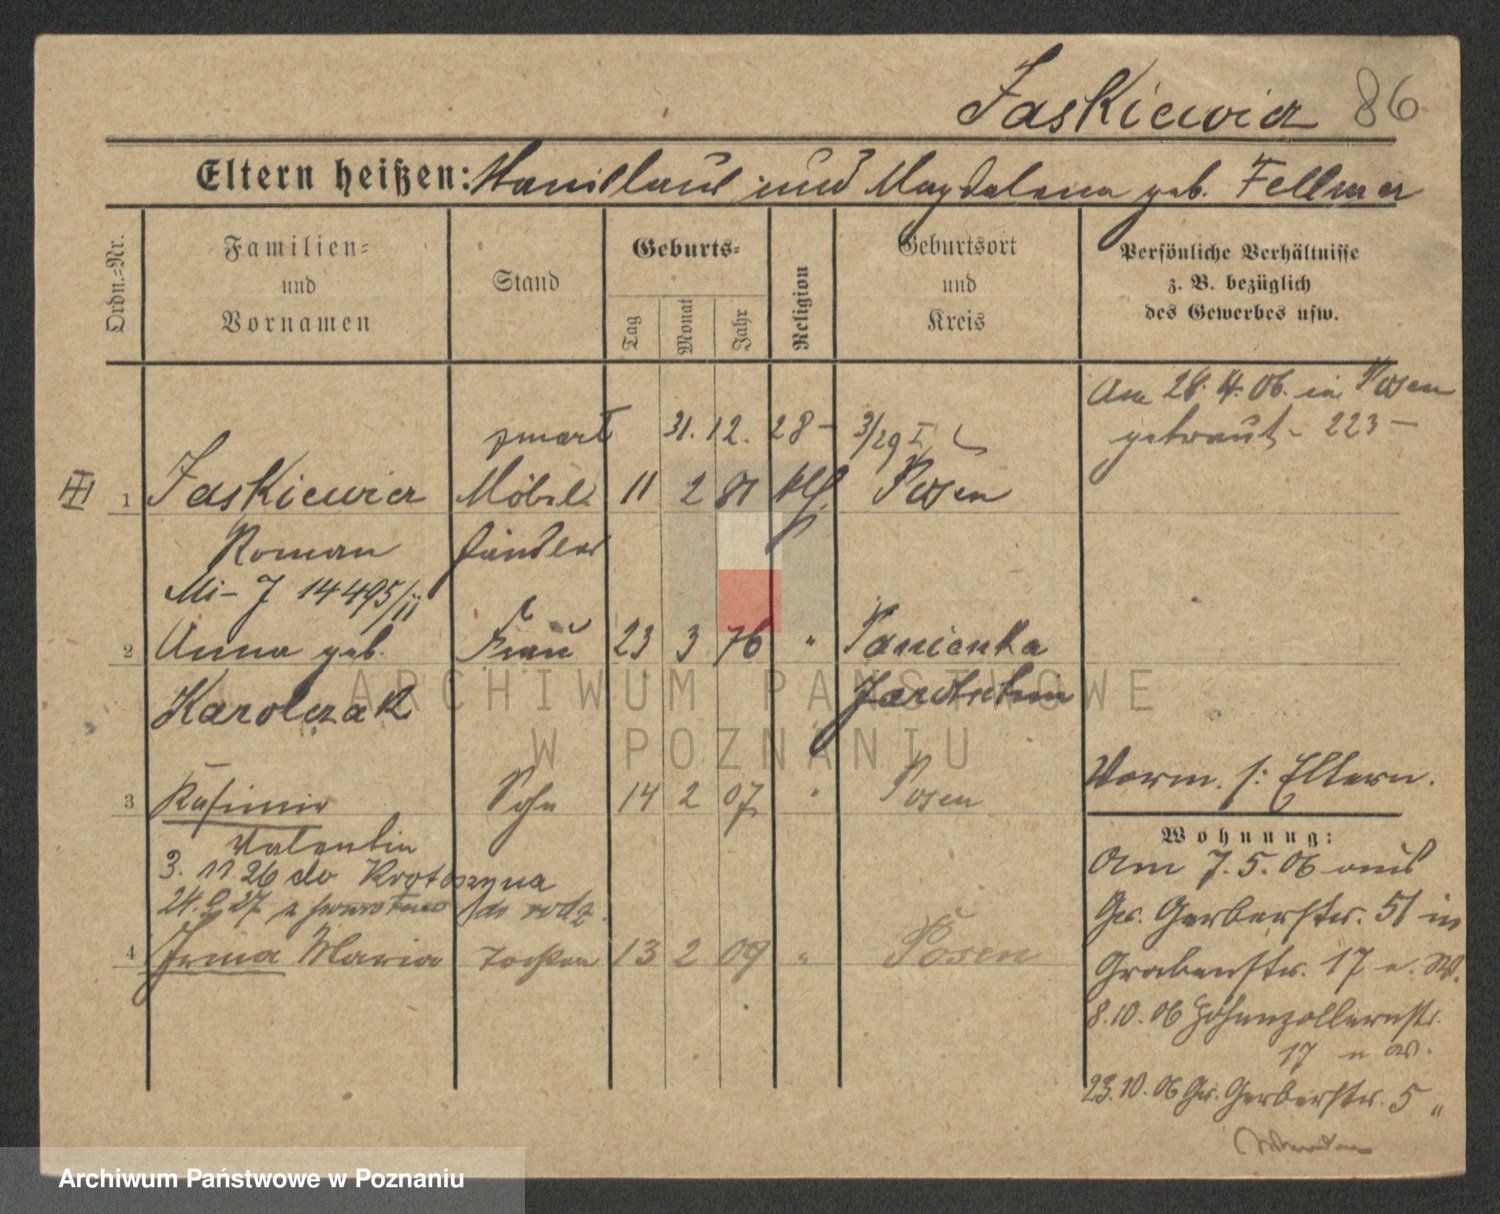 Jaskiewicz 86
Eltern heißen: Stanislaus und Magdalena geb. Fellmer
Ordn.=Nr.
Familien=
und
Vornamen
Stand
Geburts=
Tag
Monat
Jahr
Religion
Geburtsort
und
Kreis
Persönliche Verhältnisse
z. B. bezüglich
des Gewerbes usw.
Am 28. 4. 06. in Posen
getraut - 223 -
zmarł 31. 12. 28 - 3/29 I
1 Jaskiewicz Möbel= 11 2 81 kth. Posen
Roman händler
Mi- J 14495/II
2 Anna geb. Frau 23 3 76 " Panienka
Karolczak Jarotschin
3 Kasimir Sohn 14 2 07 " Posen
Valentin
3. 11 26 do Krotoszyna
24. 2. 27 z powrotem do rodz.
4 Irma Maria Tochter 13 2 09 " Posen
Vorm. s: Eltern.
Wohnung:
Am 7. 5. 06 aus
Gr. Gerberstr. 51 in
Grabenstr. 17 n. W.
8. 10. 06 Hohenzollernstr.
17 n W.
23. 10. 06 Gr. Gerberstr. 5 "
ARCHIWUM PAŃSTWOWE
W POZNANIU
Archiwum Państwowe w Poznaniu